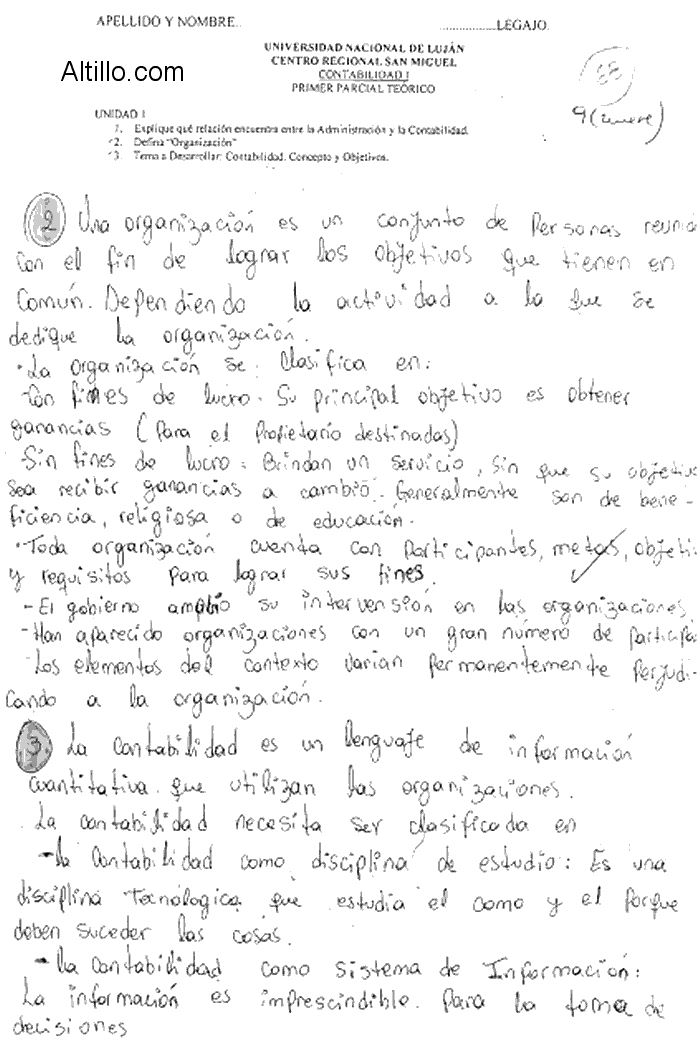 APELLIDO Y NOMBRE.. ....................LEGAJO
UNIVERSIDAD NACIONAL DE LUJÁN
CENTRO REGIONAL SAN MIGUEL
CONTABILIDAD I
PRIMER PARCIAL TEÓRICO
Altillo.com
9 (nueve)
UNIDAD I
1. Explique qué relación encuentra entre la Administración y la Contabilidad.
2. Defina "Organización"
3. Tema a Desarrollar: Contabilidad. Concepto y Objetivos.
2 Una organización es un conjunto de Personas reuni
con el fin de lograr los objetivos que tienen en
común. Dependiendo la actividad a la que se
dedique la organización.
· La organización se: clasifica en:
- Con fines de lucro. Su principal objetivo es obtener
ganancias (para el Propietario destinadas)
- Sin fines de lucro: Brindan un servicio, sin que su objetivo
sea recibir ganancias a cambio. Generalmente son de bene-
ficiencia, religiosa o de educación.
· Toda organización cuenta con Participantes, metas, objeti
y requisitos para lograr sus fines.
- El gobierno amplio su intervensión en las organizaciones.
- Han aparecido organizaciones con un gran número de particip
- Los elementos del contexto varian permanentemente Perjudi-
cando a la organización.
3. La contabilidad es un lenguaje de información
cuantitativa que utilizan las organizaciones.
La contabilidad necesita ser clasificada en
- la Contabilidad como disciplina de estudio: Es una
disciplina Tecnologica que estudia el como y el Porque
deben suceder las cosas.
- La contabilidad como sistema de Información:
La información es imprescindible. Para la toma de
decisiones